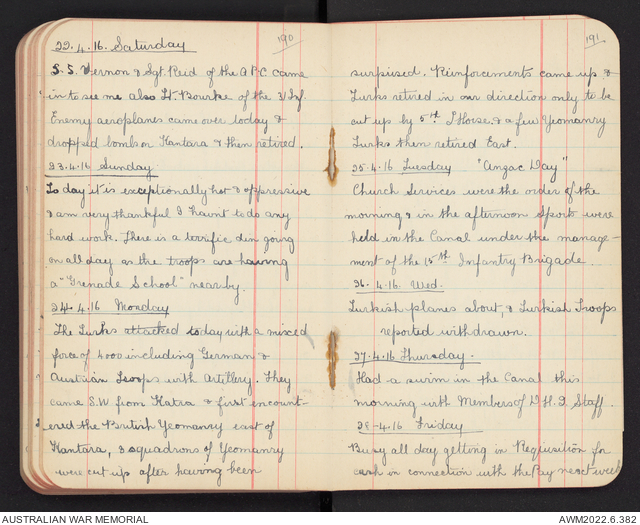 190
22.4.16. Saturday
S.S. Vernon & Sgt. Reid of the A P.C came
in to see me also Lt. Bourke of the 3/Inf
Enemy aeroplanes came over today &
dropped bombs on Kantara & then retired.
23.4.16 Sunday
To day it is exceptionally hot & oppressive
& am very thankful I havn't to do any
hard work. There is a terrific din going
on all day as the troops are having
a "Grenade School" nearby.
24.4.16 Monday
The Turks attacked today with a mixed
force of 4000 including German &
Austrian Troops with Artillery. They
came S.W from Katia & first encount-
ered the British Yeomanry east of
Kantara, 3 squadrons of Yeomanry
were cut up after having been
191
surprised. Reinforcements came up &
Turks retired in our direction only to be
cut up by 5th L Horse & a few Yeomanry
Turks then retired East.
25.4.16 Tuesday "Anzac Day"
Church Services were the order of the
morning & in the afternoon Sports were
held in the Canal under the manage-
ment of the 15th Infantry Brigade.
26.4.16 Wed.
Turkish planes about, & Turkish Troops
reported withdrawn.
27.4.16 Thursday.
Had a swim in the Canal this
morning with Members of D.H.Q Staff.
28-4.16 Friday
Busy all day getting in Requisition for
cash in connection with the Pay next week
AUSTRALIAN WAR MEMORIAL
AWM2022.6.382